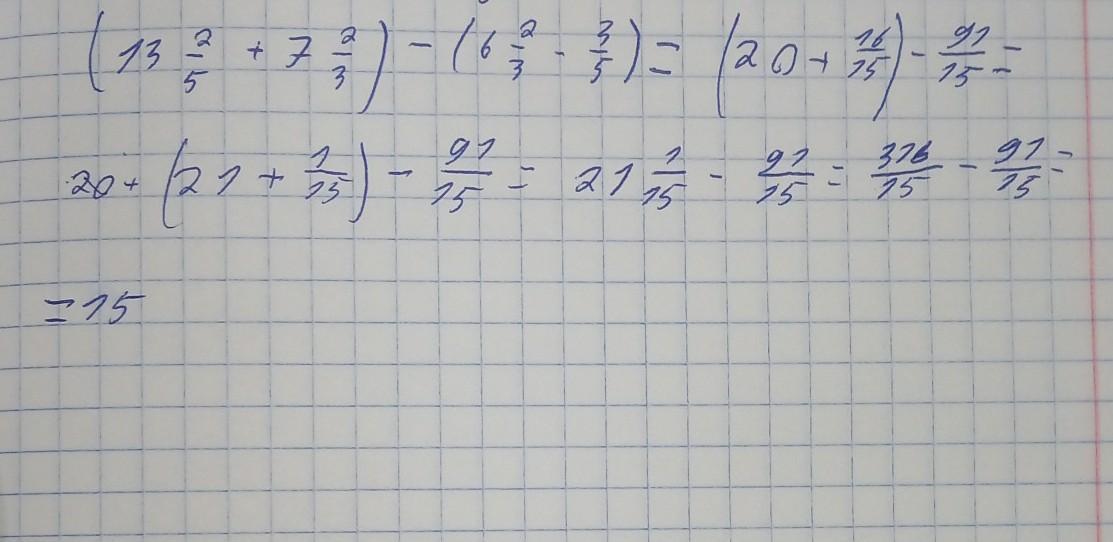 (13 2/5 + 7 2/3) - (6 2/3 - 3/5) = (20 + 16/15) - 91/15 =
20 + (21 + 1/15) - 91/15 = 21 1/15 - 91/15 = 316/15 - 91/15 =
= 15